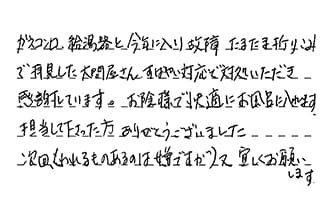 ガスコンロ、給湯器と今年に入り故障 たまたま折り込み
で拝見した大問屋さん すばやい対応で対処いただき
感謝しています。お陰様で快適にお風呂に入れます
担当して下さった方 ありがとうございました
次回 われるものあるのは嫌ですが 宜しくお願い
します